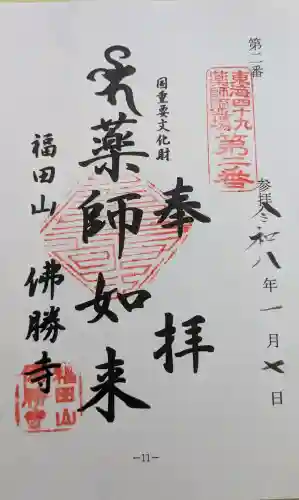 第二番
東海四十九
薬師霊場
第二番
参拝 令和八年一月七日
奉拝
国重要文化財
薬師如来
福田山 佛勝寺
福田山
佛勝寺
－11－